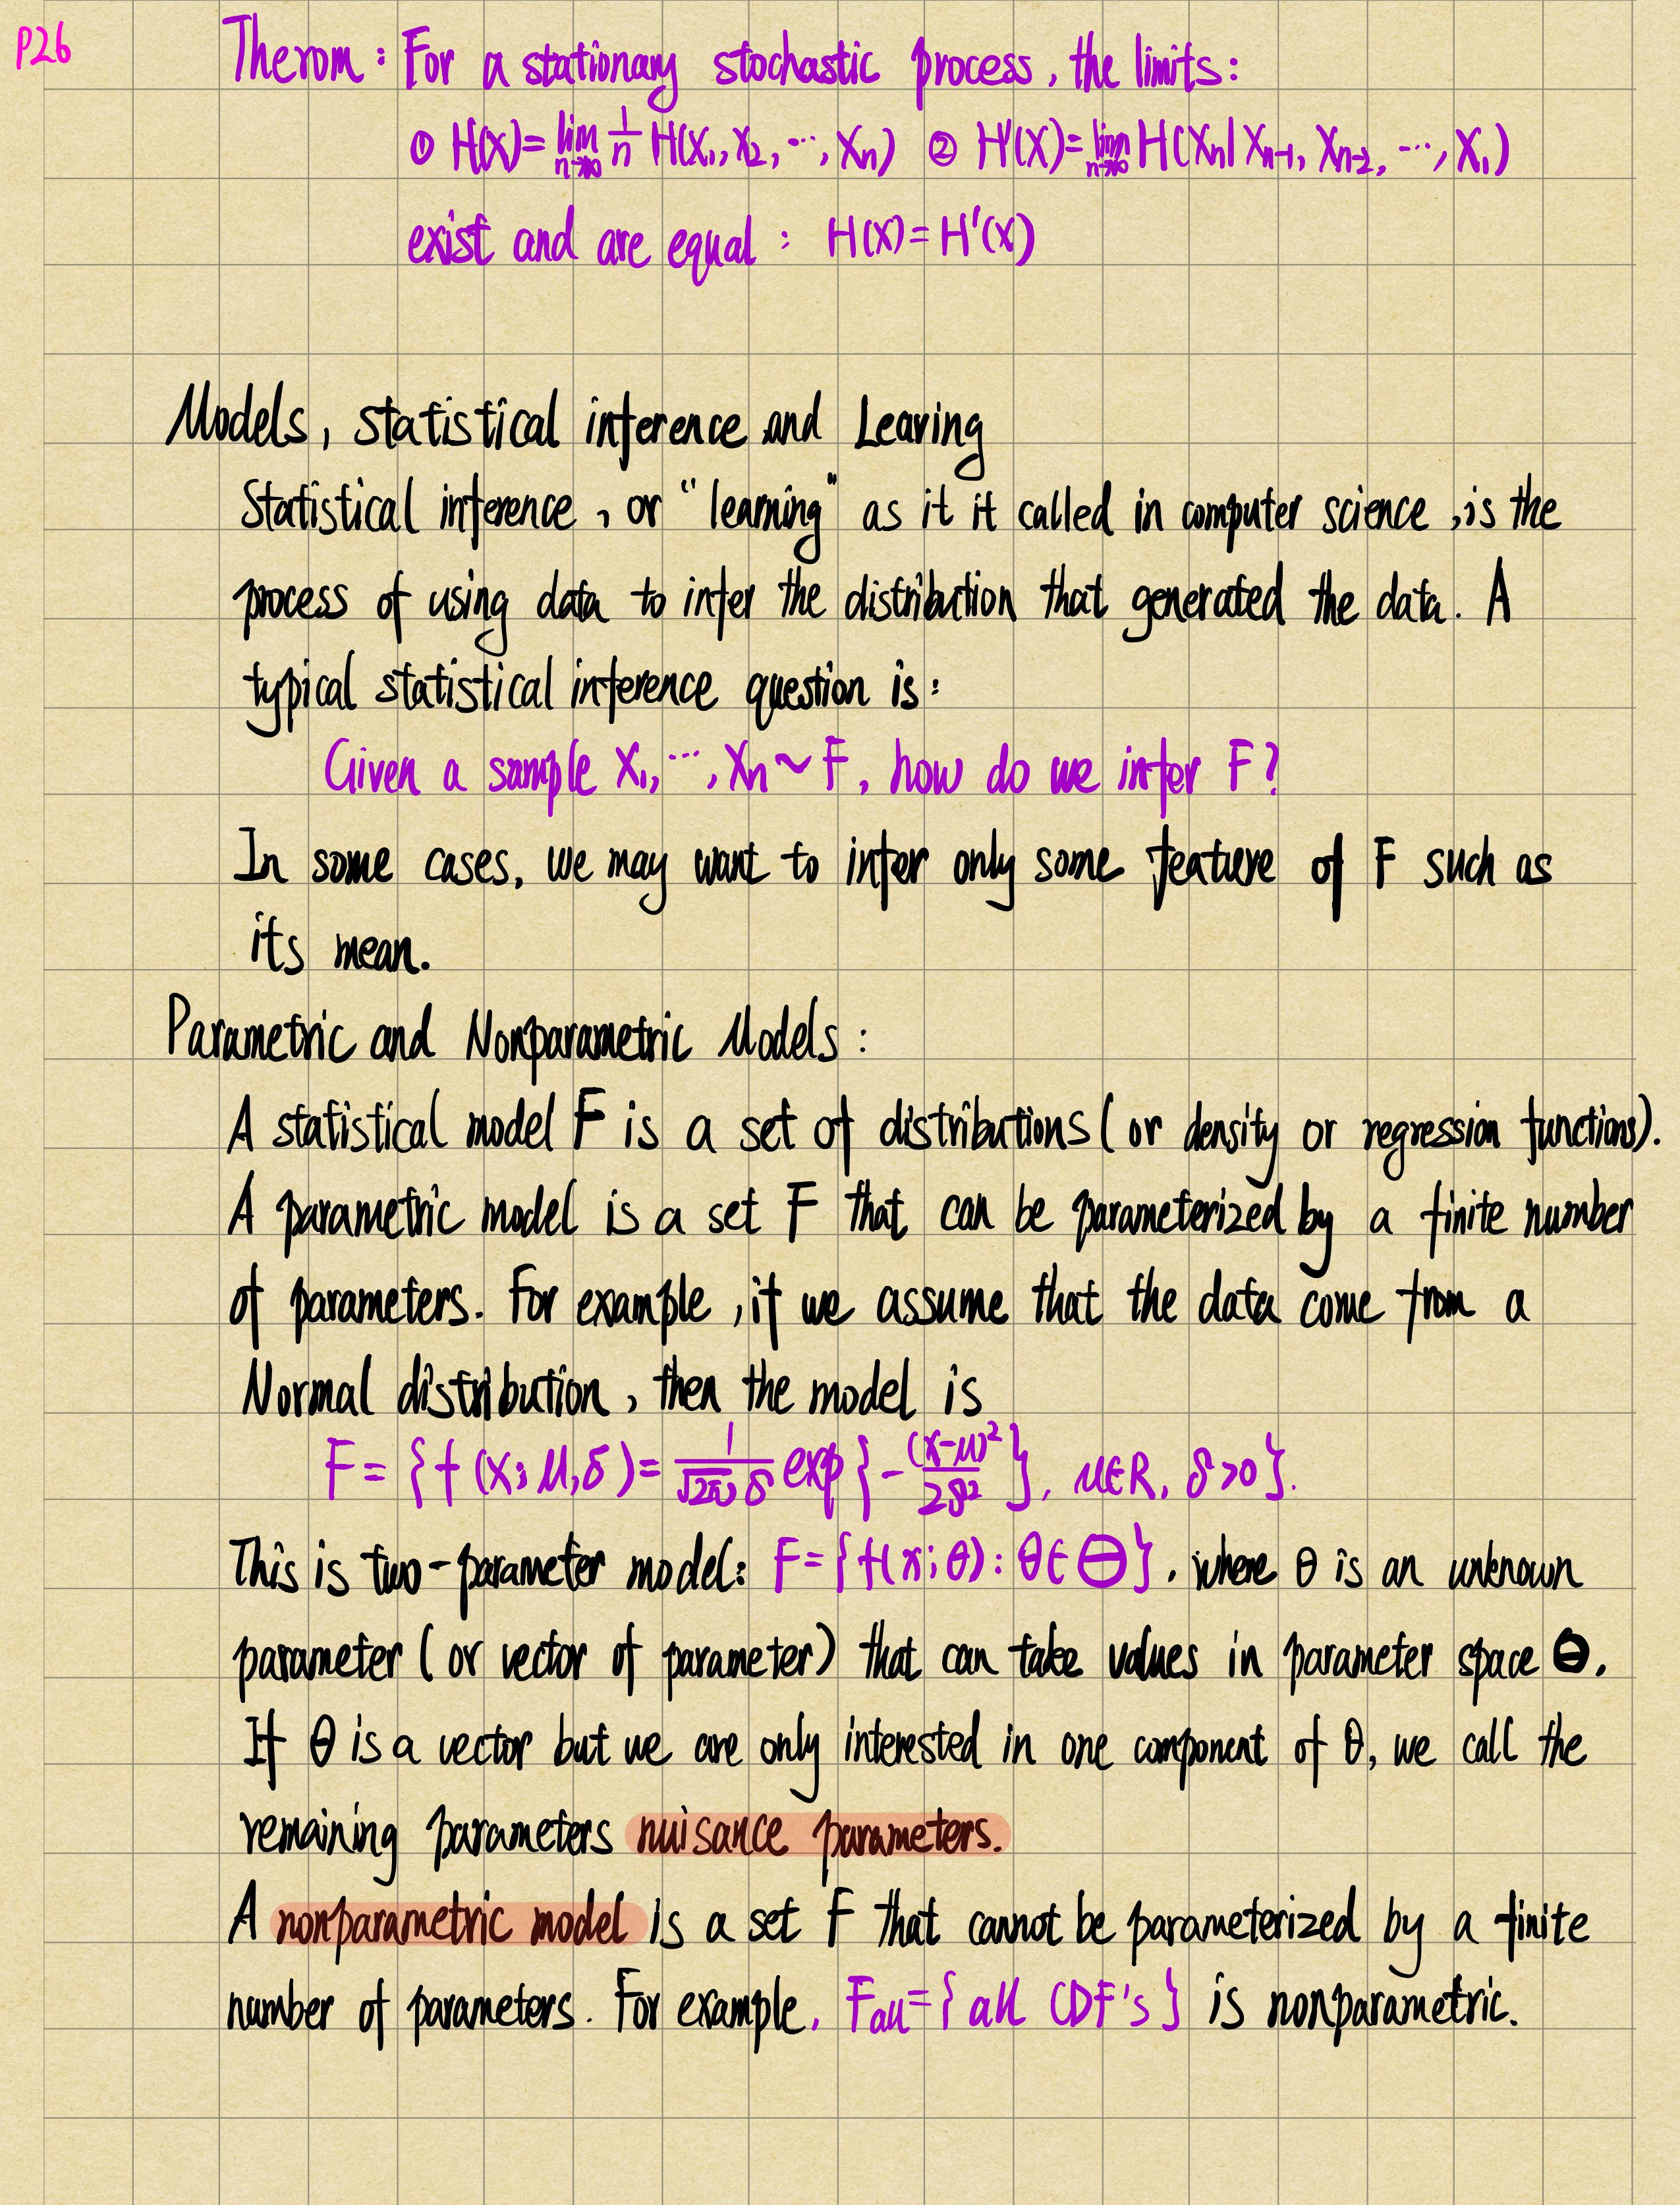 P26
Therom : For a stationary stochastic process, the limits:
① H(X)=lim n→∞ 1/n H(X₁, X₂, ⋯, Xn) ② H'(X)=lim n→∞ H(Xn| Xn-1, Xn-2, ⋯, X₁)
exist and are equal : H(X)=H'(X)
Models, statistical inference and Learing
Statistical inference, or "learning" as it it called in computer science, is the
process of using data to infer the distribution that generated the data. A
typical statistical inference question is:
Given a sample X₁, ⋯, Xn ~ F, how do we infer F?
In some cases, we may want to infer only some feature of F such as
its mean.
Parametric and Nonparametric Models :
A statistical model F is a set of distributions (or density or regression functions).
A parametric model is a set F that can be parameterized by a finite number
of parameters. For example, if we assume that the data come from a
Normal distribution, then the model is
F = {f (x; μ, δ) = 1/(√2π δ) exp{-(x-μ)²/2δ²}, μ∈R, δ>0}.
This is two-parameter model: F={f(x; θ) : θ∈Θ}, where θ is an unknown
parameter (or vector of parameter) that can take values in parameter space Θ.
If θ is a vector but we are only interested in one component of θ, we call the
remaining parameters nuisance parameters.
A nonparametric model is a set F that cannot be parameterized by a finite
number of parameters. For example, Fall={all CDF's} is nonparametric.